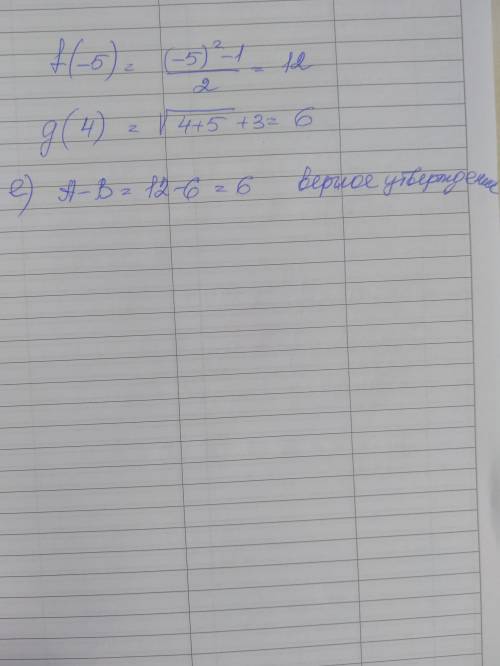 f(-5) = ((-5)² - 1)/2 = 12
g(4) = √(4+5) + 3 = 6
e) A - B = 12 - 6 = 6 верное утверждение